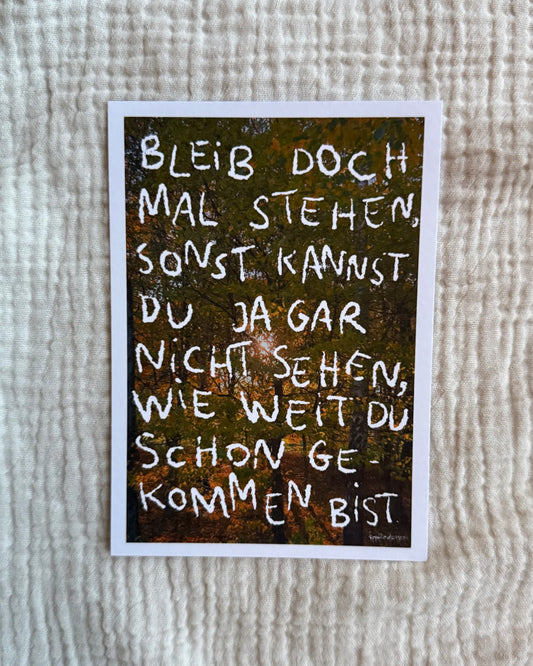 BLEIB DOCH
MAL STEHEN,
SONST KANNST
DU JA GAR
NICHT SEHEN,
WIE WEIT DU
SCHON GE-
KOMMEN BIST.